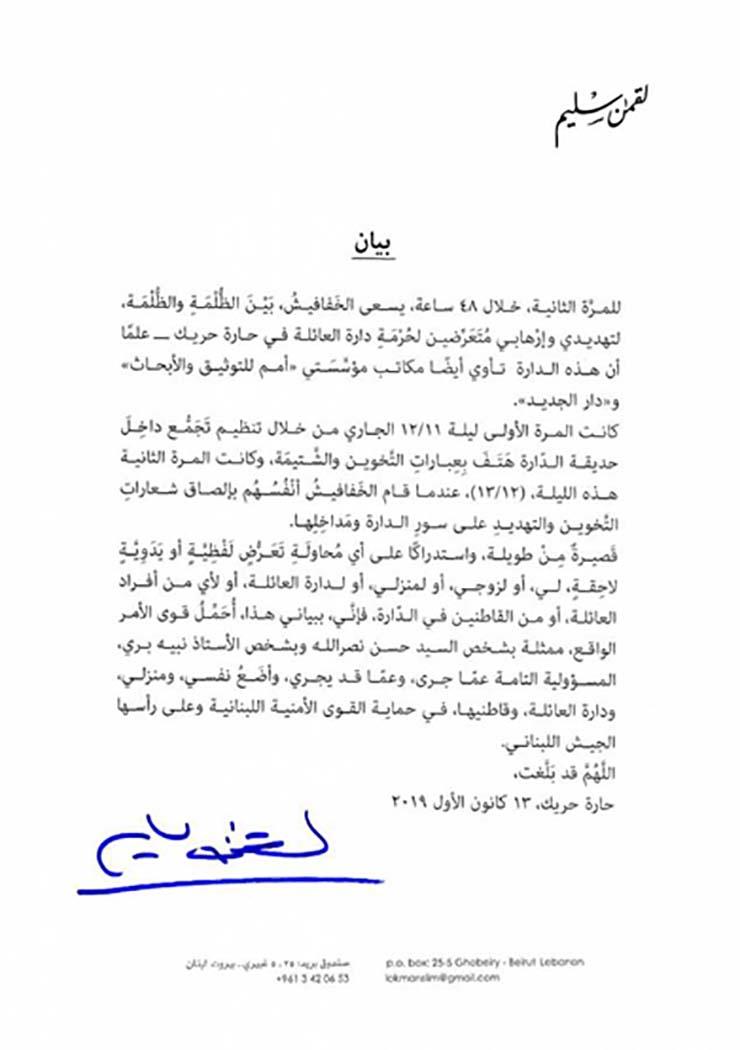 لقمن سليم
بيان
للمرَّة الثانية، خلال ٤٨ ساعة، يسعى الخَفافيشُ، بَيْنَ الظُّلْمَةِ والظُّلْمَة،
لتهديدي وإرْهابي مُتَعَرِّضين لحُرْمَةِ دارة العائلة في حارة حريك ــ علمًا
أن هذه الدارة تأوي أيضًا مكاتب مؤسَّسَتي «أمم للتوثيق والأبحاث»
و«دار الجديد».
كانت المرة الأولى ليلة ١٢/١١ الجاري من خلال تنظيم تَجَمُّع داخِلَ
حديقة الدّارة هَتَفَ بِعِباراتِ التَّخوين والشَّتيمَة، وكانت المرة الثانية
هذه الليلة، (١٣/١٢)، عندما قام الخَفافيشُ أنْفُسُهُم بإلصاق شعاراتِ
التَّخوين والتهديدِ على سورِ الدارة ومَداخِلِها.
قَصيرةٌ مِنْ طويلة، واستدراكًا على أي مُحاولَةِ تَعَرُّضٍ لَفْظِيَّةٍ أو يَدَوِيَّةٍ
لاحِقةٍ، لي، أو لزوجي، أو لمنزلي، أو لدارة العائلة، أو لأي من أفراد
العائلة، أو من القاطنين في الدّارة، فإنَّي، ببياني هذا، أُحَمِّلُ قوى الأمر
الواقع، ممثلة بشخص السيد حسن نصرالله وبشخص الأستاذ نبيه بري،
المسؤولية التامة عمّا جرى، وعمّا قد يجري، وأضَعُ نفسي، ومنزلي،
ودارة العائلة، وقاطنيها، في حماية القوى الأمنية اللبنانية وعلى رأسها
الجيش اللبناني.
اللَّهُمَّ قد بَلَّغت،
حارة حريك، ١٣ كانون الأول ٢٠١٩
لقمن سليم
صندوق بريد: ٢٥ ، ٥ غبيري ـ بيروت، لبنان
+961 3 42 06 53
p.o. box: 25-5 Ghobeiry - Beirut Lebanon
lokmanslim@gmail.com